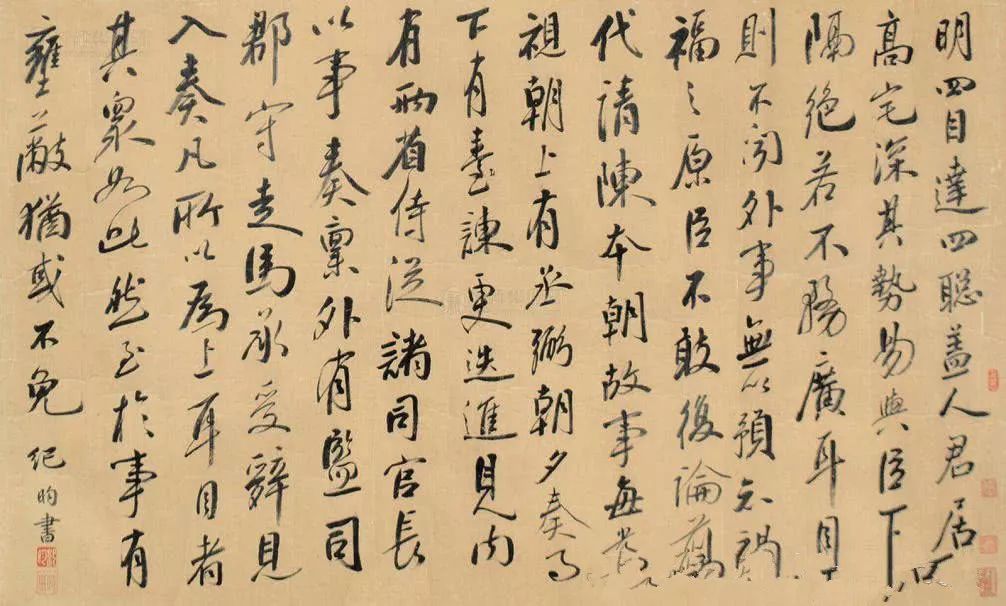 明四目達四聰蓋人君居
高宅深其勢易與臣下
隔絶若不務廣耳目
則不聞外事無以預知禍
福之原臣不敢復論
代請陳本朝故事每當
視朝上有丞弼朝夕奏事
下有臺諫更迭進見內
有兩省侍從諸司官長
以事奏稟外有監司
郡守走馬承受辭見
入奏凡所以為上耳目者
其衆如此然至於事有
壅蔽猶或不免
紀昀書